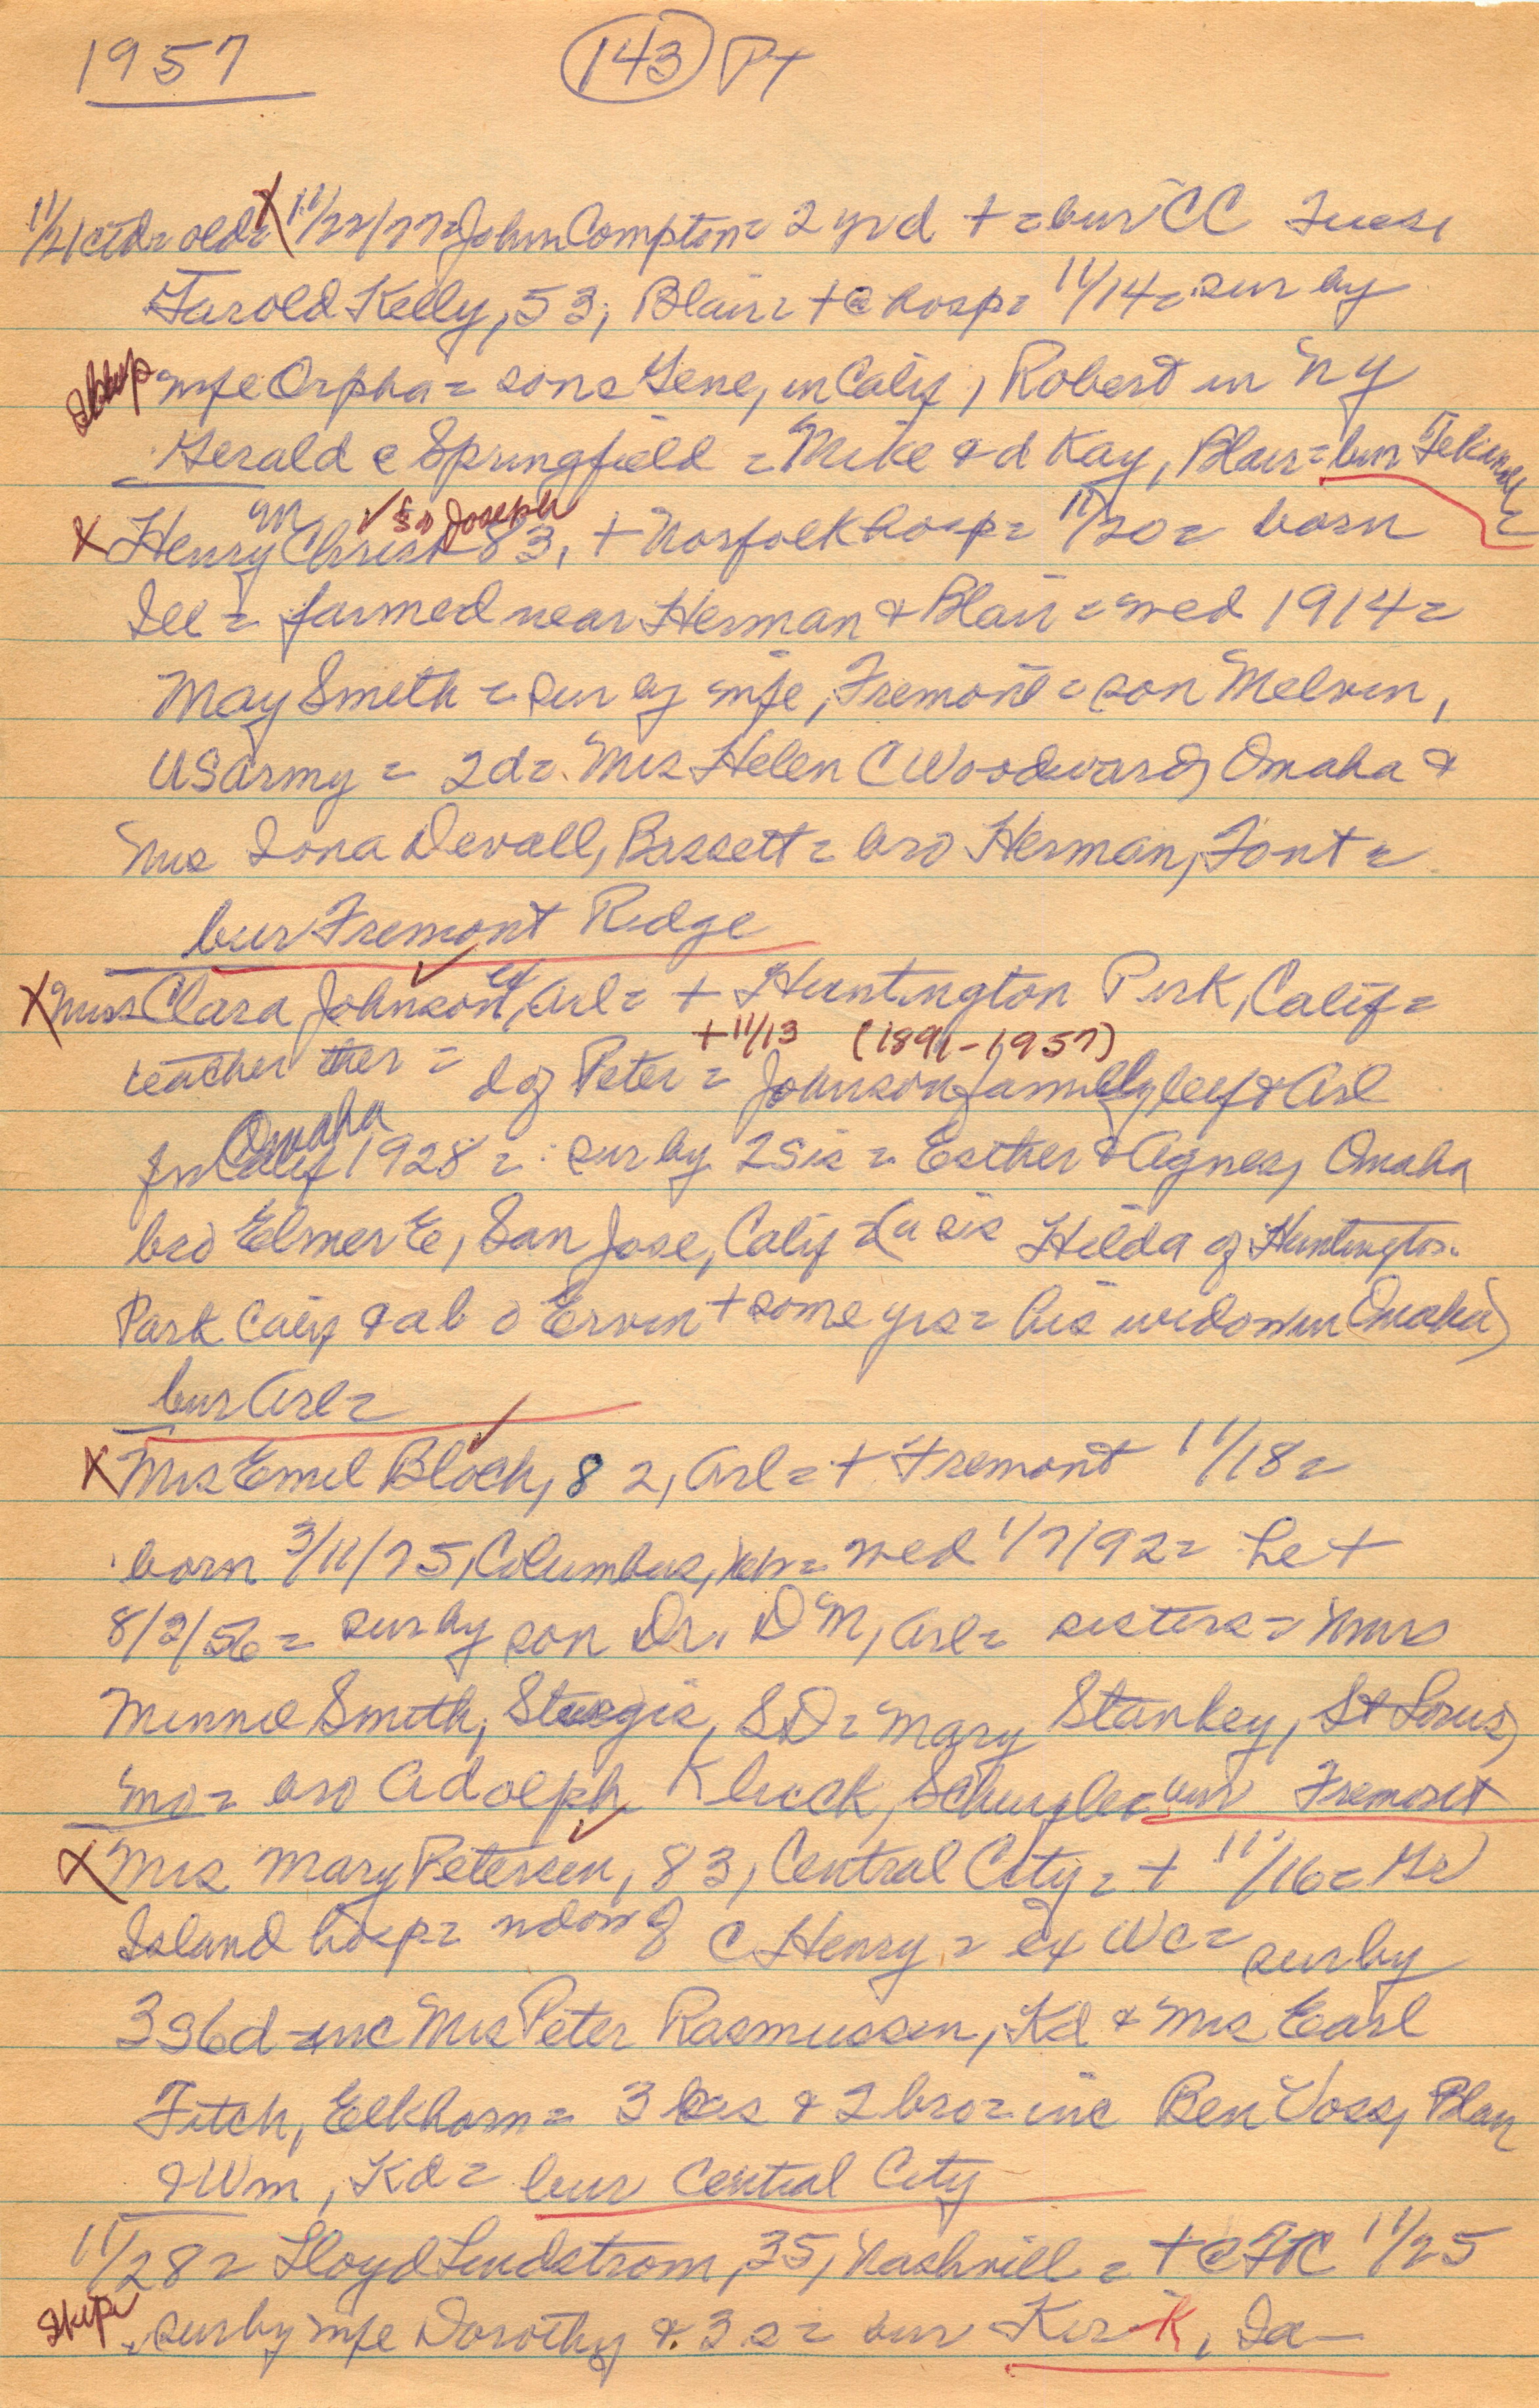 1957 143 PT
11/21 ctd= old= X 11/22/77= John Compton= 2 yrd += bur CC Tues,
Harold Kelly, 53, Blair= + @ hosp= 11/14= sur by
Skip wife Orpha= sons Gene, in Calif, Robert in NY
Gerald @ Springfield = Mike & d Kay, Blair= bur Tekamah=
m ✓ So Joseph
X Henry Christ 83, + Norfolk hosp= 11/20= born
Ill = farmed near Herman & Blair = wed 1914=
May Smith = sur by wife, Fremont = son Melvin,
US army = 2d= Mrs Helen C Woodward, Omaha &
Mrs Iona Devall, Bassett= bro Herman, Font=
bur Fremont Ridge
X Miss Clara Johnson, ex Arl= + Huntington Prk, Calif=
+11/13 (1891-1957)
teacher ther = d of Peter = Johnson family left Arl
Omaha
fm Calif 1928 = sur by 2 sis = Esther & Agnes, Omaha
bro Elmer E, San Jose, Calif = (a sis Hilda of Huntington
Park Calif & a b o Ervin + some yrs= his widow in Omaha)
bur Arl=
X Mrs Emil Bloch, 82, Arl= + Fremont 11/18=
born 3/11/75, Columbus, Neb= wed 1/7/92= he +
8/2/56= sur by son Dr. D M, Arl= sisters= Mmes
Minnie Smith, Sturgis, SD= Mary Stanley, St Louis,
Mo= bro Adolph Kluck, Schuyler= bur Fremont
X Mrs Mary Petersen, 83, Central City= + 11/16= Gr
Island hosp= widow of C Henry = ex WC= sur by
3s6d inc Mrs Peter Rasmussen, Kd & Mrs Earl
Fitch, Elkhorn= 3 sis & 2 bro= inc Ben Voss, Blair
& Wm, Kd= bur Central City
11/28= Lloyd Lindstrom, 35, Nashvill = + @ FtC 11/25
Skip sur by wife Dorothy & 3 s= bur Kirk, Ia